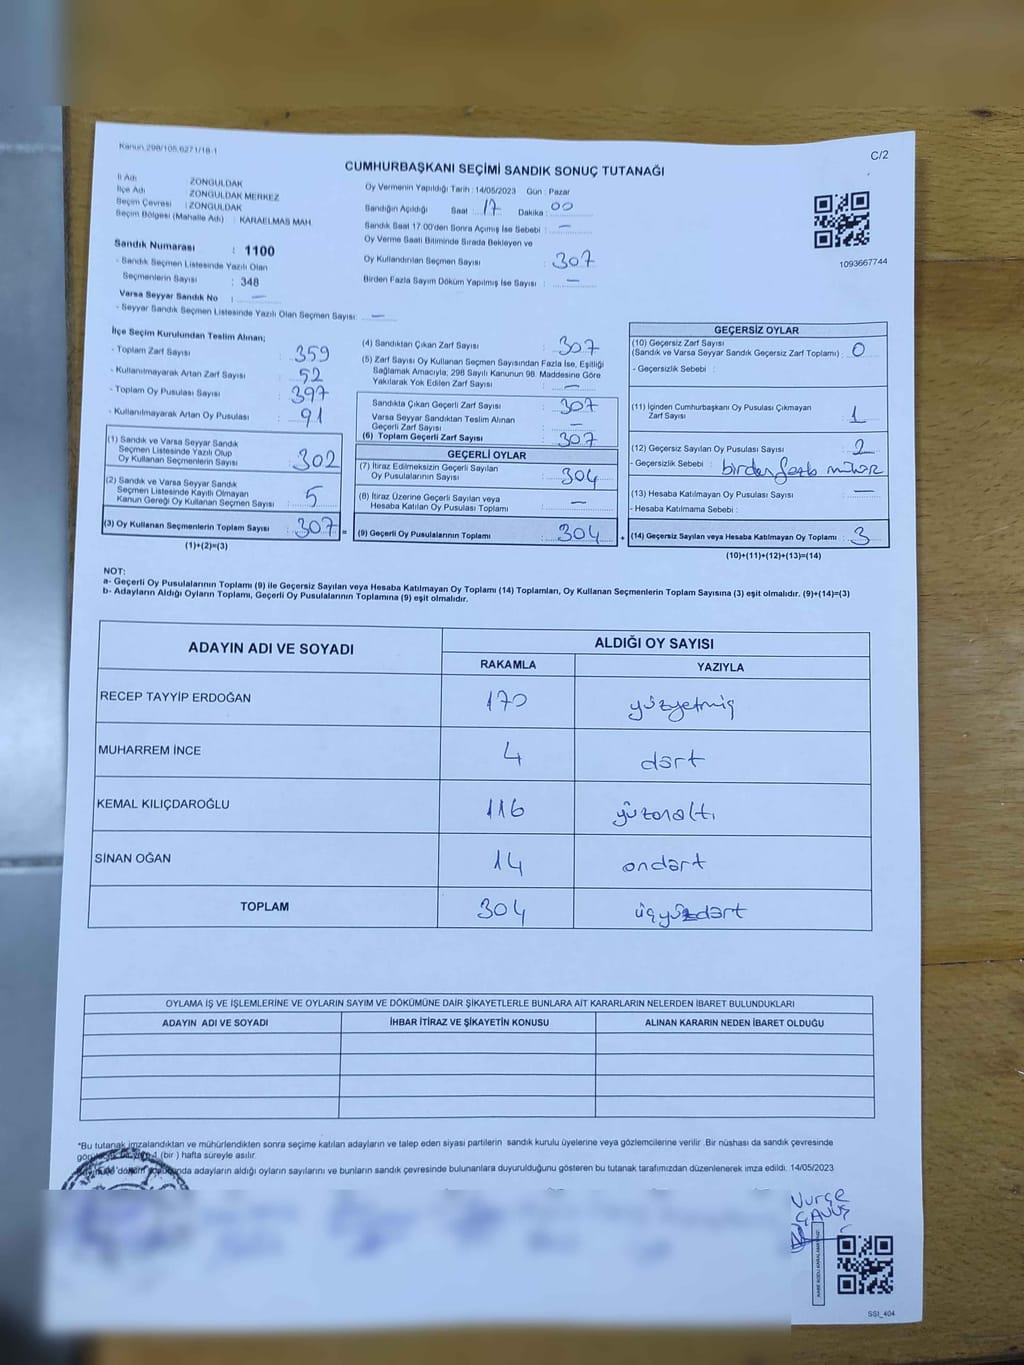 Kanun 298/105,6271/18-1
C/2
CUMHURBAŞKANI SEÇİMİ SANDIK SONUÇ TUTANAĞI
İl Adı ZONGULDAK
İlçe Adı : ZONGULDAK MERKEZ
Seçim Çevresi : ZONGULDAK
Seçim Bölgesi (Mahalle Adı) : KARAELMAS MAH.
Sandık Numarası : 1100
- Sandık Seçmen Listesinde Yazılı Olan
Seçmenlerin Sayısı : 348
Varsa Seyyar Sandık No : —
- Seyyar Sandık Seçmen Listesinde Yazılı Olan Seçmen Sayısı: —
Oy Vermenin Yapıldığı Tarih : 14/05/2023 Gün : Pazar
Sandığın Açıldığı Saat : 17 Dakika : 00
Sandık Saat 17.00'den Sonra Açımış İse Sebebi : —
Oy Verme Saati Bitiminde Sırada Bekleyen ve
Oy Kullandırılan Seçmen Sayısı : 307
Birden Fazla Sayım Döküm Yapılmış İse Sayısı : —
1093667744
İlçe Seçim Kurulundan Teslim Alınan;
- Toplam Zarf Sayısı : 359
- Kullanılmayarak Artan Zarf Sayısı : 52
- Toplam Oy Pusulası Sayısı : 397
- Kullanılmayarak Artan Oy Pusulası : 91
(1) Sandık ve Varsa Seyyar Sandık
Seçmen Listesinde Yazılı Olup
Oy Kullanan Seçmenlerin Sayısı : 302
(2) Sandık ve Varsa Seyyar Sandık
Seçmen Listesinde Kayıtlı Olmayan
Kanun Gereği Oy Kullanan Seçmen Sayısı : 5
(3) Oy Kullanan Seçmenlerin Toplam Sayısı : 307 =
(1)+(2)=(3)
(4) Sandıktan Çıkan Zarf Sayısı : 307
(5) Zarf Sayısı Oy Kullanan Seçmen Sayısından Fazla İse, Eşitliği
Sağlamak Amacıyla; 298 Sayılı Kanunun 98. Maddesine Göre
Yakılarak Yok Edilen Zarf Sayısı : —
Sandıkta Çıkan Geçerli Zarf Sayısı : 307
Varsa Seyyar Sandıktan Teslim Alınan
Geçerli Zarf Sayısı : —
(6) Toplam Geçerli Zarf Sayısı : 307
GEÇERLİ OYLAR
(7) İtiraz Edilmeksizin Geçerli Sayılan
Oy Pusulalarının Sayısı : 304
(8) İtiraz Üzerine Geçerli Sayılan veya
Hesaba Katılan Oy Pusulası Toplamı : —
(9) Geçerli Oy Pusulalarının Toplamı : 304 +
GEÇERSİZ OYLAR
(10) Geçersiz Zarf Sayısı
(Sandık ve Varsa Seyyar Sandık Geçersiz Zarf Toplamı) : 0
- Geçersizlik Sebebi :
(11) İçinden Cumhurbaşkanı Oy Pusulası Çıkmayan
Zarf Sayısı : 1
(12) Geçersiz Sayılan Oy Pusulası Sayısı : 2
- Geçersizlik Sebebi : birden fazla mühür
(13) Hesaba Katılmayan Oy Pusulası Sayısı : —
- Hesaba Katılmama Sebebi :
(14) Geçersiz Sayılan veya Hesaba Katılmayan Oy Toplamı : 3
(10)+(11)+(12)+(13)=(14)
NOT:
a- Geçerli Oy Pusulalarının Toplamı (9) ile Geçersiz Sayılan veya Hesaba Katılmayan Oy Toplamı (14) Toplamları, Oy Kullanan Seçmenlerin Toplam Sayısına (3) eşit olmalıdır. (9)+(14)=(3)
b- Adayların Aldığı Oyların Toplamı, Geçerli Oy Pusulalarının Toplamına (9) eşit olmalıdır.
ADAYIN ADI VE SOYADI ALDIĞI OY SAYISI
RAKAMLA YAZIYLA
RECEP TAYYİP ERDOĞAN 170 yüzyetmiş
MUHARREM İNCE 4 dört
KEMAL KILIÇDAROĞLU 116 yüzonaltı
SİNAN OĞAN 14 ondört
TOPLAM 304 üçyüzdört
OYLAMA İŞ VE İŞLEMLERİNE VE OYLARIN SAYIM VE DÖKÜMÜNE DAİR ŞİKAYETLERLE BUNLARA AİT KARARLARIN NELERDEN İBARET BULUNDUKLARI
ADAYIN ADI VE SOYADI İHBAR İTİRAZ VE ŞİKAYETİN KONUSU ALINAN KARARIN NEDEN İBARET OLDUĞU
*Bu tutanak imzalandıktan ve mühürlendikten sonra seçime katılan adayların ve talep eden siyasi partilerin sandık kurulu üyelerine veya gözlemcilerine verilir .Bir nüshası da sandık çevresinde
1 (bir ) hafta süreyle asılır.
adayların aldığı oyların sayılarını ve bunların sandık çevresinde bulunanlara duyurulduğunu gösteren bu tutanak tarafımızdan düzenlenerek imza edildi. 14/05/2023
Nurçe
ÇAVUŞ
SSI_404